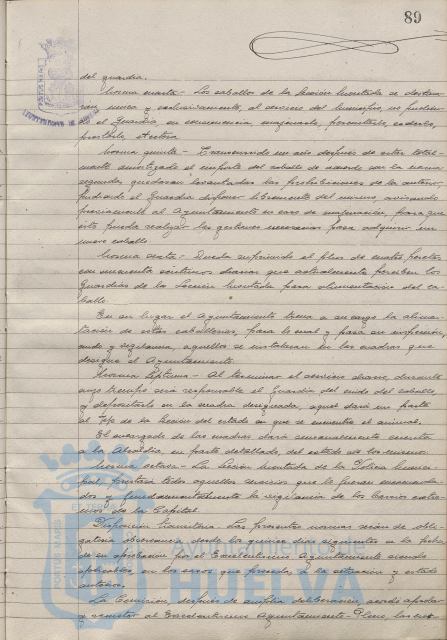 89
del guardia.
Norma cuarta - Los caballos de la Sección Montada se destina-
rán única y exclusivamente, al servicio del Municipio, no pudien-
do el Guardia, en consecuencia enajenarlo, permutarlo, cederlo,
prestarlo, etcétera
Norma quinta - Transcurrido un año después de estar total-
mente amortizado el importe del caballo de acuerdo con la norma
segunda, quedarán levantadas las prohibiciones de la anterior,
pudiendo el Guardia disponer libremente del mismo, avisando
previamente al Ayuntamiento en caso de enajenación, para que
éste pueda realizar las gestiones necesarias para adquirir un
nuevo caballo
Norma sexta - Queda suprimido el plus de cuatro pesetas
con cincuenta céntimos diarios que actualmente perciben los
Guardias de la Sección Montada para alimentación del ca-
ballo.
En su lugar el Ayuntamiento toma a su cargo la alimen-
tación de estas caballerías, para lo cual y para su inspección,
cuido y vigilancia, aquellos se instalarán en las cuadras que
designe el Ayuntamiento.
Norma séptima - Al terminar el servicio diario, durante
cuyo tiempo será responsable el Guardia del cuido del caballo
y depositarlo en la cuadra designada, aquel dará un parte
al Jefe de la Sección del estado en que se encuentre el animal.
El encargado de las cuadras dará semanalmente cuenta
a la Alcaldía, en parte detallado, del estado de los mismos.
Norma octava - La Sección Montada de la Policía Munici-
pal, prestará todos aquellos servicios que le fueran encomenda-
dos y fundamentalmente la vigilancia de los barrios extre-
mos de la Capital.
Disposición transitoria - Las presentes normas serán de obli-
gatoria observancia desde los quince días siguientes a la fecha
de su aprobación por el Excelentísimo Ayuntamiento siendo
aplicables, en los casos que proceda, a la situación y estado
La Comisión, después de amplia deliberación, acordó aprobar
y someter al Excelentísimo Ayuntamiento Pleno, las
Ayuntamiento de
HUELVA
PORTUS MARIS